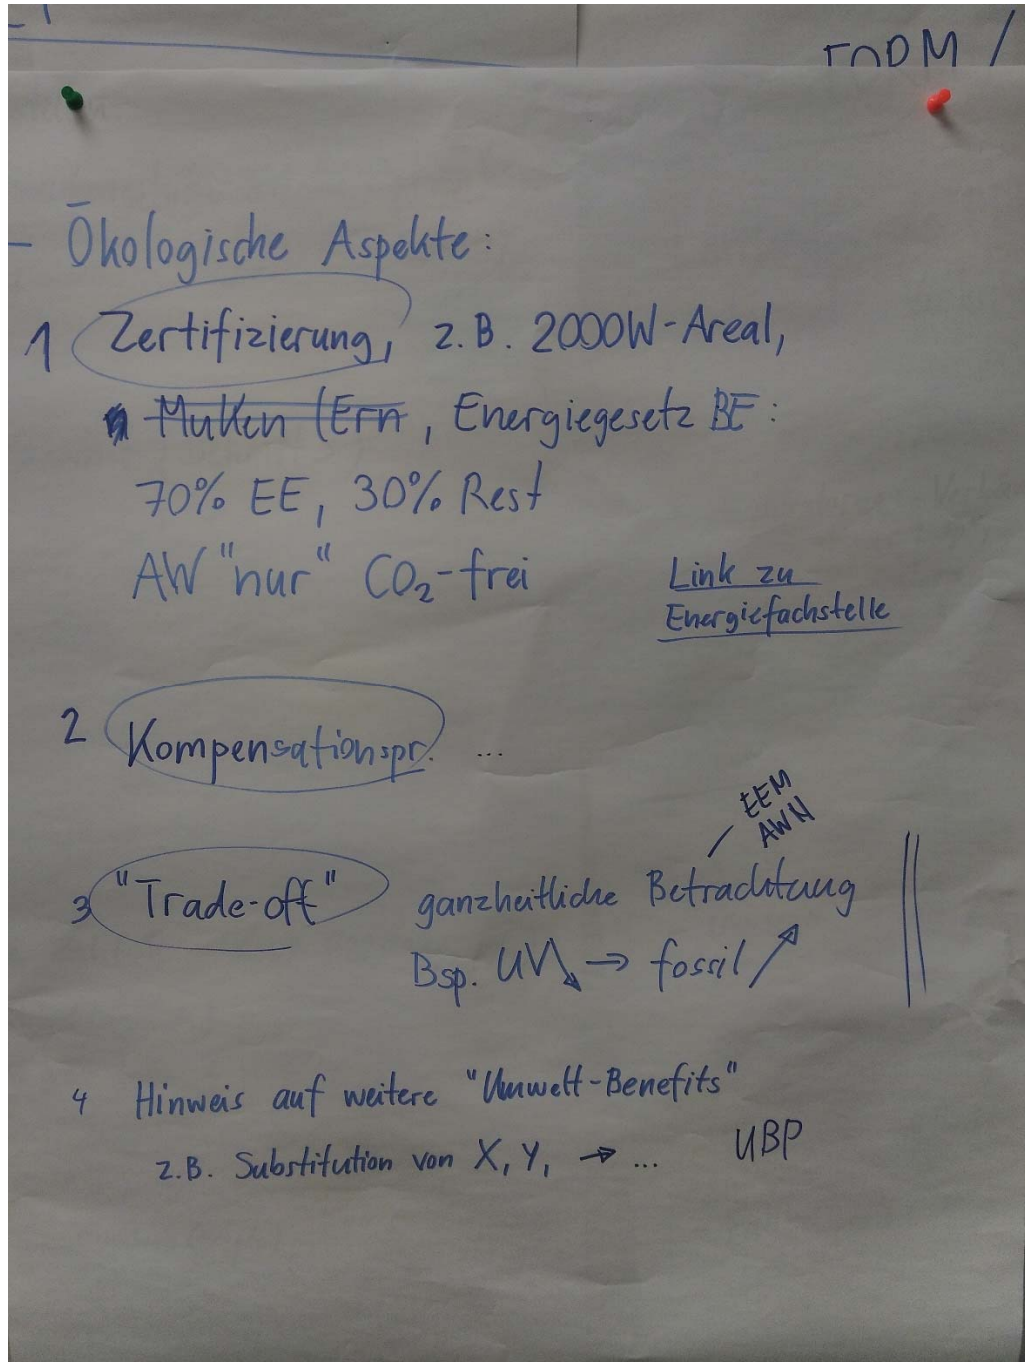 - Ökologische Aspekte:
1 Zertifizierung, z.B. 2000W-Areal,
, Energiegesetz BE:
70% EE, 30% Rest
AW "nur" CO₂-frei
Link zu
Energiefachstelle
2 Kompensationspr. ...
EEM
AWN
3 "Trade-off" ganzheitliche Betrachtung
Bsp. UV↘ → fossil ↗
4 Hinweis auf weitere "Umwelt-Benefits"
z.B. Substitution von X, Y, → ... UBP